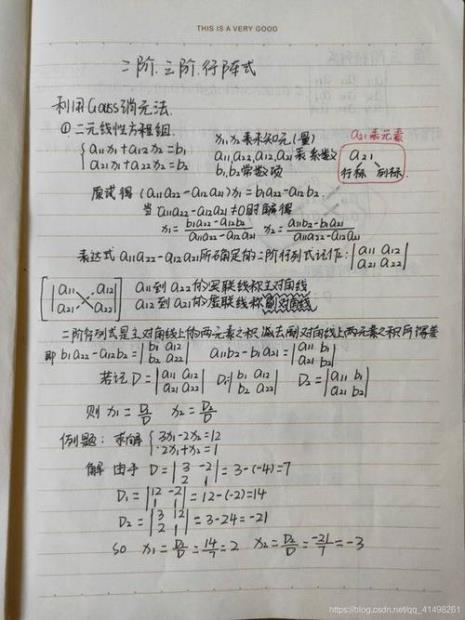 THIS IS A VERY GOOD
二阶、三阶、行阵式
利用Gauss消元法.
①二元线性方程组.
{a₁₁x₁+a₁₂x₂=b₁
a₂₁x₁+a₂₂x₂=b₂
x₁,x₂表未知元(量)
a₁₁,a₂₂,a₁₂,a₂₁表系数
b₁,b₂常数项
a₂₁表元素
a₂₁
行标 列标
原试得 (a₁₁a₂₂-a₁₂a₂₁)x₁=b₁a₂₂-a₁₂b₂
当a₁₁a₂₂-a₁₂a₂₁≠0时解得
x₁=(b₁a₂₂-a₁₂b₂)/(a₁₁a₂₂-a₁₂a₂₁) x₂=(a₁₁b₂-b₁a₂₁)/(a₁₁a₂₂-a₁₂a₂₁)
表达式a₁₁a₂₂-a₁₂a₂₁所确定的二阶行列式记作: |a₁₁ a₁₂
a₂₁ a₂₂|
[|a₁₁ a₁₂
a₂₁ a₂₂|]
a₁₁到a₂₂的实联线称主对角线
a₁₂到a₂₁的虚联线称副对角线
二阶行列式是主对角线上的两元素之积减去副对角线上两元素之积所得差
即 b₁a₂₂-a₁₂b₂=|b₁ a₁₂
b₂ a₂₂| a₁₁b₂-b₁a₂₁=|a₁₁ b₁
a₂₁ b₂|
若记D=|a₁₁ a₁₂
a₂₁ a₂₂| D₁=|b₁ a₁₂
b₂ a₂₂| D₂=|a₁₁ b₁
a₂₁ b₂|
则 x₁=D₁/D x₂=D₂/D
例题: 求解{3x₁-2x₂=12
2x₁+x₂=1
解 由于 D=|3 -2
2 1|=3-(-4)=7
D₁=|12 -2
1 1|=12-(-2)=14
D₂=|3 12
2 1|=3-24=-21
so x₁=D₁/D=14/7=2 x₂=D₂/D=-21/7=-3
https://blog.csdn.net/qq_41498261